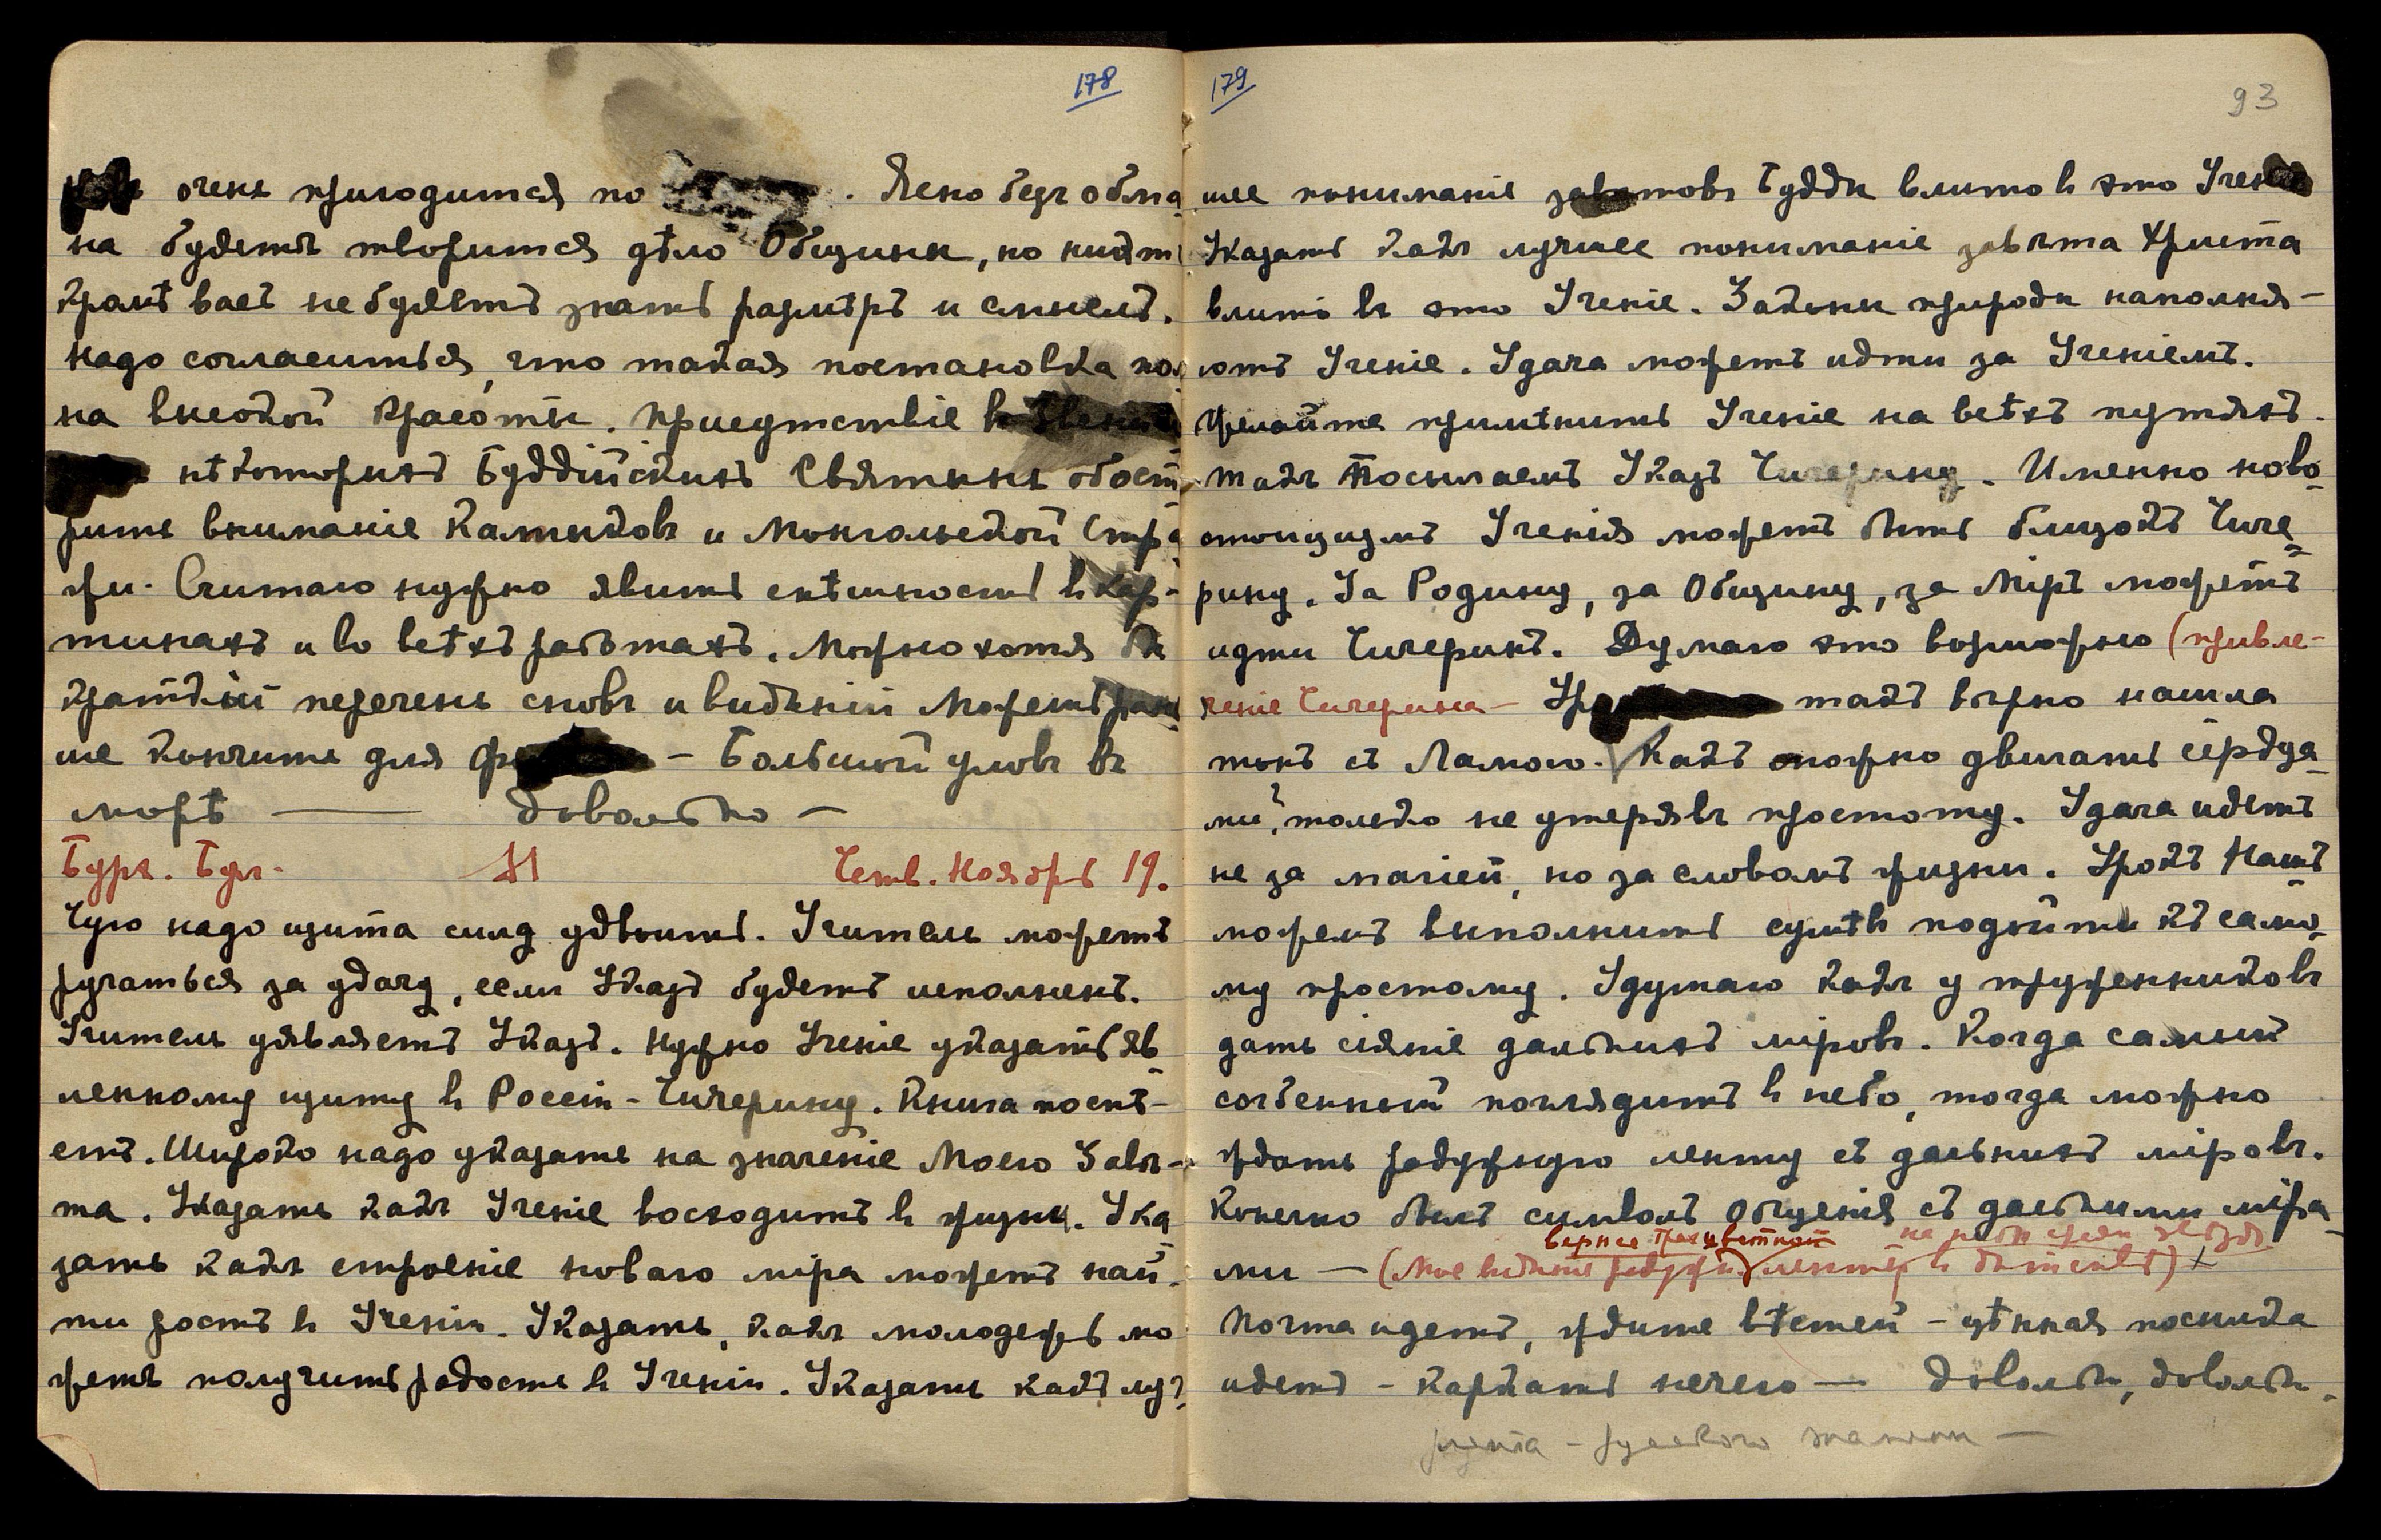 178
очень пригодится по . Ясно безъ обма
на будетъ творится дѣло Общины, но никто
кромѣ васъ не будетъ знать размѣръ и смыслъ.
Надо согласиться, что такая постановка пол
на высокой красоты. Присутствіе
нѣкоторыхъ Буддійскихъ Святынь обост
рить вниманіе Калмыковъ и Монгольской Стра
жи. Считаю нужно явить спѣшность въ кар-
тинахъ и во всѣхъ работахъ. Можно хотя бы
краткій перечень сновъ и видѣній. Можетъ рань
ше кончить для – Большой уловъ въ
морѣ — довольно –
Четв. Ноябрь 19.
Чую надо щита силу удвоить. Учитель можетъ
ручаться за удачу, если Указъ будетъ исполненъ.
Учитель уявляетъ Указъ. Нужно Ученіе указать яв
ленному щиту въ Россіи – Чичерину. Книга поспѣ-
етъ. Широко надо указать на значеніе Моего Завѣ-
та. Указать какъ Ученіе восходитъ въ жизнь. Ука
зать какъ строеніе новаго міра можетъ най-
ти ростъ въ Ученіи. Указать, какъ молодежь мо
жетъ получить радость въ Ученіи. Указать какъ луч
179
93
шее пониманіе завѣтовъ Будды влито въ это Ученіе
Указать какъ лучшее пониманіе завѣта Христа
влито въ это Ученіе. Законы природы наполня-
ютъ Ученіе. Удача можетъ идти за Ученіемъ.
Желайте примѣнить Ученіе на всѣхъ путяхъ.
Такъ Посылаемъ Указъ Чичерину. Именно ново
Ученія можетъ быть близокъ Чиче
рину. За Родину, за Общину, за Міръ можетъ
идти Чичеринъ. Думаю это возможно (привле-
ченіе Чичерина – такъ вѣрно нашла
тонъ съ Ламою. Какъ можно двигать сердца
ми, только не утерявъ простоту. Удача идетъ
не за магіей, но за словомъ жизни. Урокъ Нашъ
можемъ выполнить сумѣвъ подойти къ само
му простому. Удумаю какъ у тружениковъ
дать сіяніе дальнихъ міровъ. Когда самый
согбенный поглядитъ въ небо, тогда можно
ждать радужную ленту съ дальнихъ міровъ.
Конечно былъ символъ Общенія съ дальними міра
ми — (Мое видѣніе ленты въ дѣтствѣ) +
Почта идетъ, ждите вѣстей – цѣнная посылка
идетъ – каркать нечего — довольно, довольно.